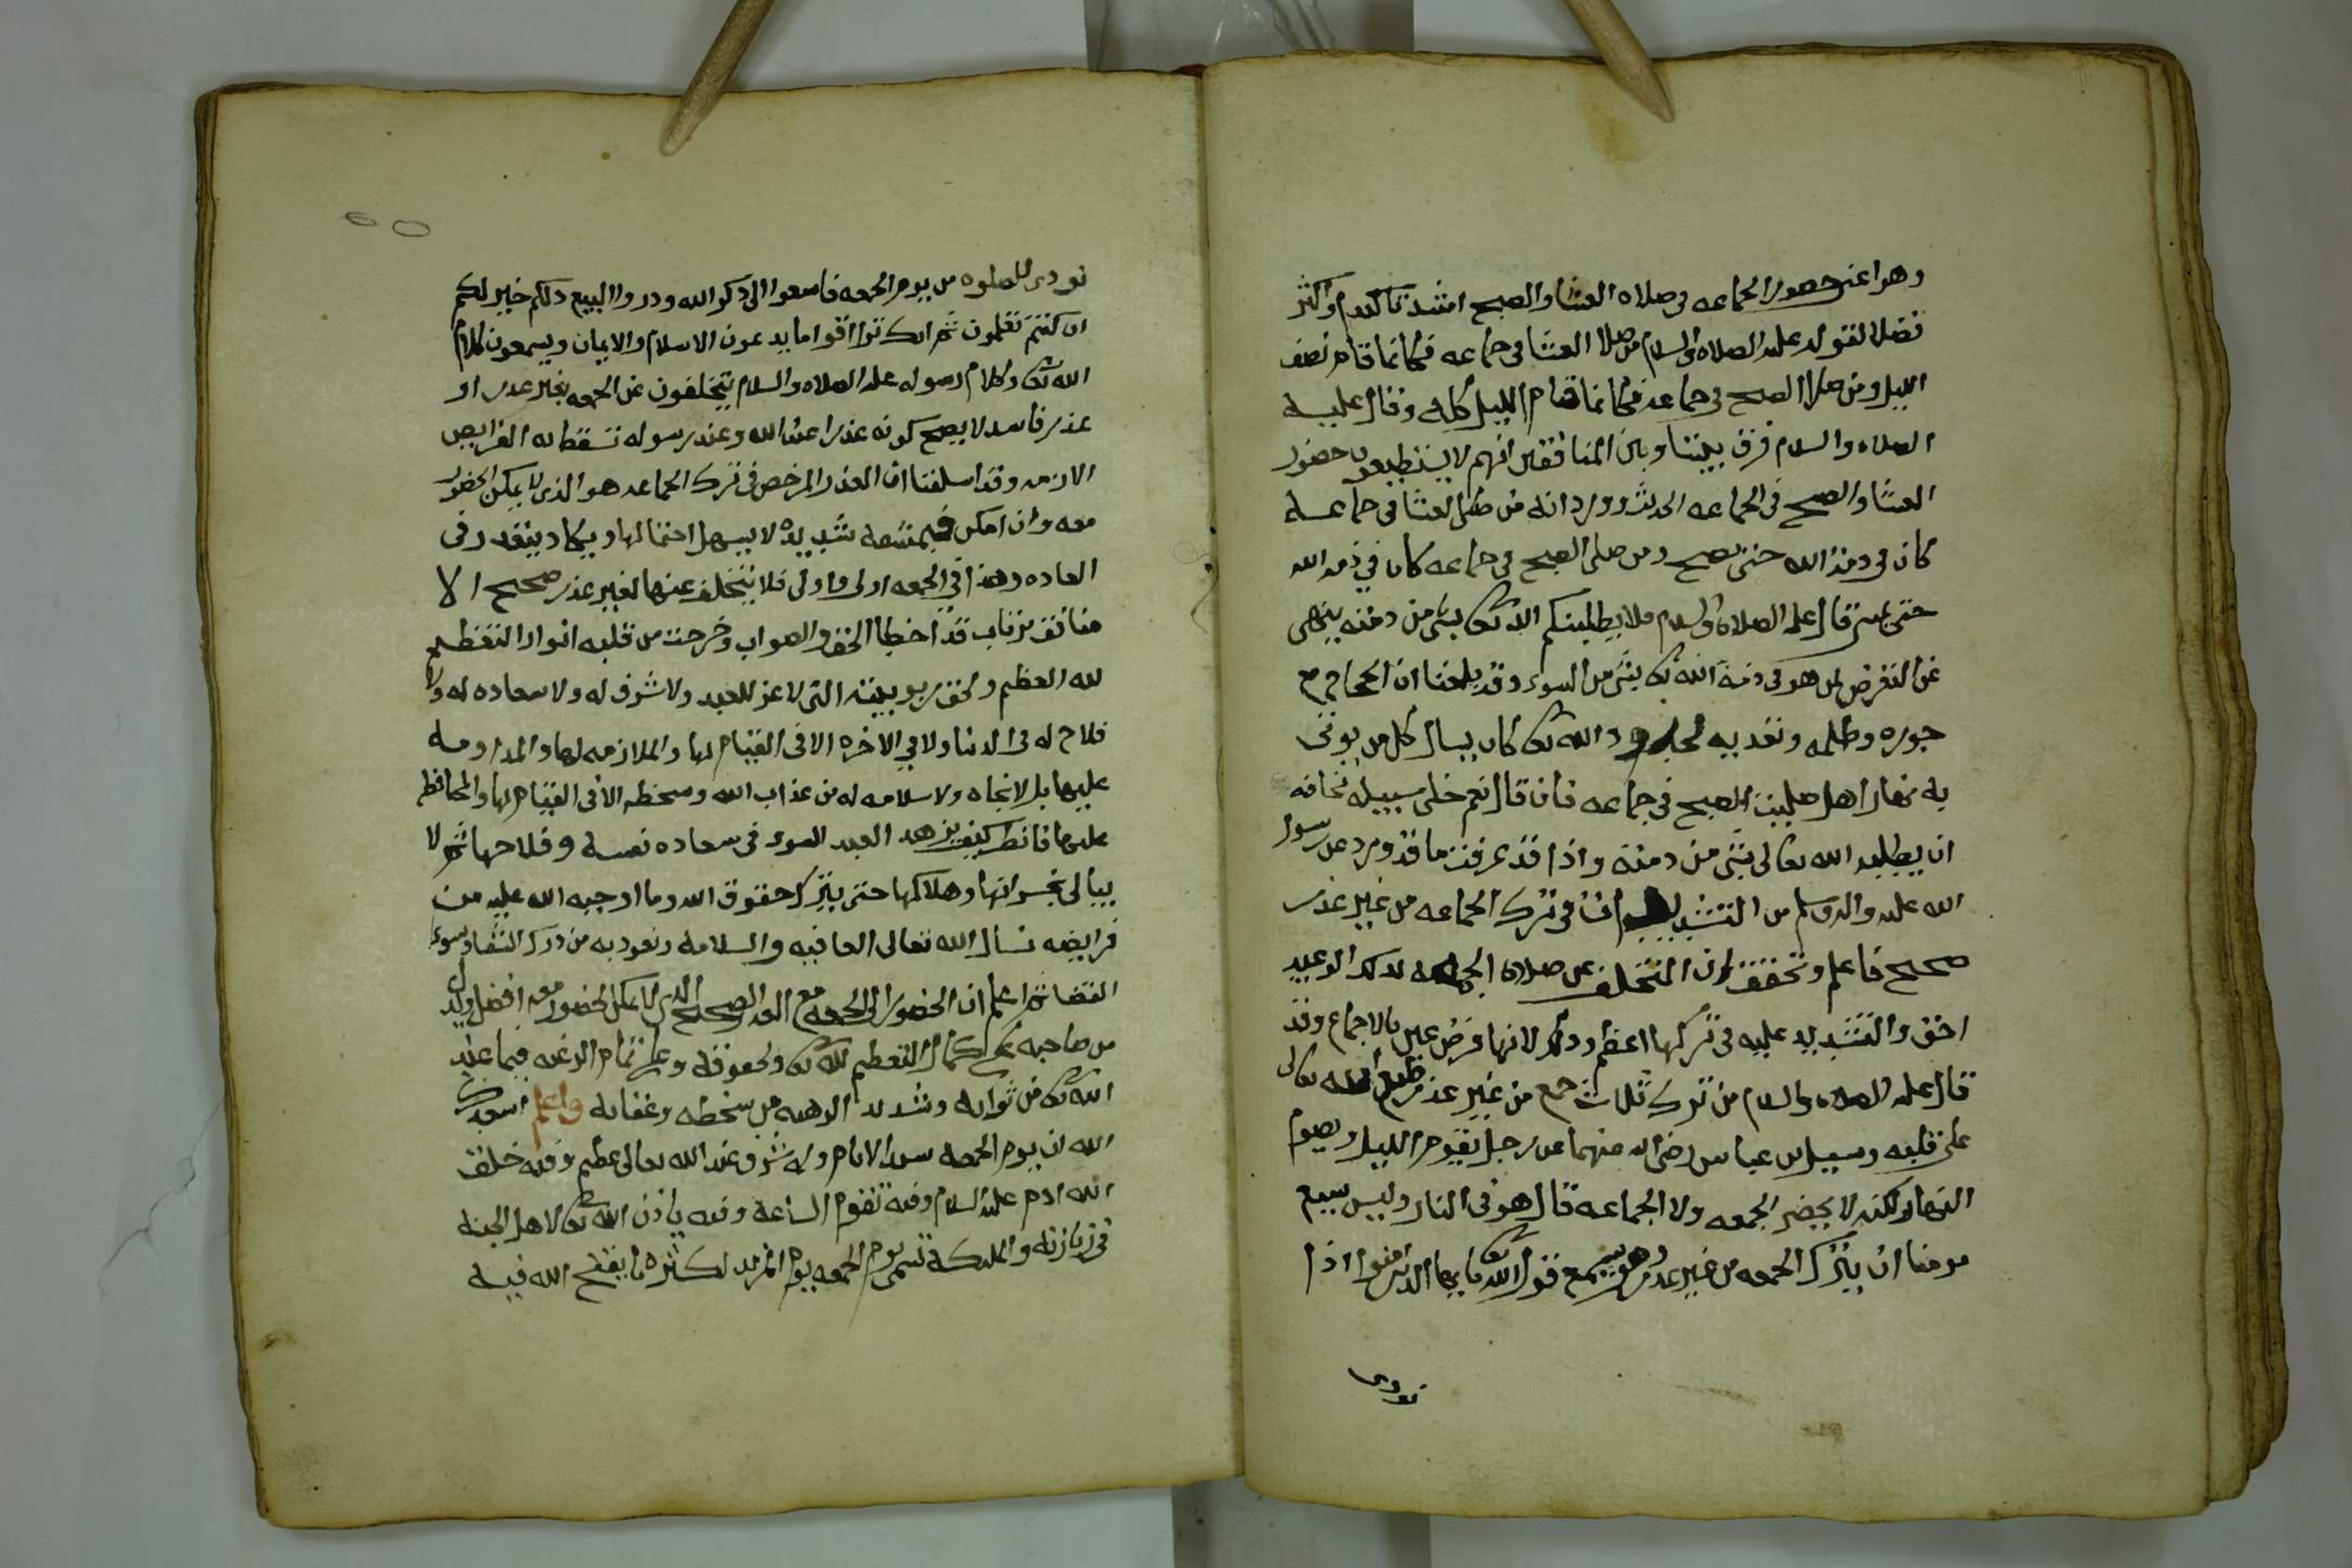 وهو اعني حضور الجماعه في صلاه العشا والصبح اشد تاكيدا واكثر
فضلا لقوله عليه الصلاه والسلام من صلا العشا في جماعه فكانما قام نصف
الليل ومن صلا الصبح في جماعه فكانما قام الليل كله وقال عليه
الصلاه والسلام فرق بيننا وبين المنافقين انهم لا يستطيعون حضور
العشا والصبح في الجماعه الحديث وورد انه من صلى العشا في جماعه
كان في ذمة الله حتى يصبح ومن صلى الصبح في جماعه كان في ذمه الله
حتى يمسي قال عليه الصلاه والسلام فلا يطلبنكم الله تعالى بشي من ذمته ينهى
عن التعرض لمن هو في ذمة الله تعالى بشي من السوء وقد بلغنا ان الحجاج مع
جوره وظلمه وتعديه لحدود الله تعالى كان يسال كل من يوتى
به نهارا هل صليت الصبح في جماعه فان قال نعم خلى سبيله مخافه
ان يطلبه الله تعالى بشي من ذمته واذا قد عرفت ما قد ورد عن رسول
الله عليه واله وسلم من التشديد في ترك الجماعه من غير عذر
صحيح فاعلم وتحقق ان المتخلف عن صلاه الجمعه بذلك الوعيد
احق والتشديد عليه في تركها اعظم وذلك لانها فرض عين بالاجماع وقد
قال عليه الصلاه والسلام من ترك ثلاث جمع من غير عذر طبع الله تعالى
على قلبه وسيل بن عباس رضي الله عنهما عن رجل يقوم الليل ويصوم
النهار ولكنه لا يحضر الجمعه ولا الجماعه قال هو في النار وليس يسع
مومنا ان يترك الجمعه من غير عذر وهو يسمع قول الله تعالى يايها الذين امنوا اذا
نودي
نودي للصلوه من يوم الجمعه فاسعوا الى ذكر الله وذروا البيع ذلكم خير لكم
ان كنتم تعلمون ثم انك ترا اقواما يدعون الاسلام والايمان ويسمعون كلام
الله تعالى وكلام رسوله عليه الصلاه والسلام يتخلفون عن الجمعه بغير عذر او
عذر فاسد لا يصح كونه عذرا عند الله وعند رسوله تسقط به الفرايض
الازمه وقد اسلفنا ان العذر المرخص في ترك الجماعه هو الذي لا يمكن الحضور
معه وان امكن فبمشقه شديده لا يسهل احتمالها ويكاد يتعذر في
العاده وهذا في الجمعه اولى واولى فلا يتخلف عنها لغير عذر صحيح الا
منافق مرتاب قد اخطا الحق والصواب وخرجت من قلبه انوار التعظيم
لله العظيم ولحق ربوبيته التي لا عز للعبد ولا شرف له ولا سعاده له ولا
فلاح له في الدنيا ولا في الاخره الا في القيام لها والملازمه لها والمداومه
عليها بل لا نجاه ولا سلامه له من عذاب الله وسخطه الا في القيام بها والمحافظه
عليها فانظر كيف يزهد العبد السوء في سعاده نفسه وفلاحها ثم لا
يبالي بخسرانها وهلاكها حتى يترك حقوق الله وما اوجبه الله عليه من
فرايضه نسال الله تعالى العافيه والسلامه ونعوذ به من درك الشقا وسوء
القضا ثم اعلم ان الحضور الى الجمعه مع العذر الصحيح الذي لا يمكن الحضور معه افضل وادل
من صاحبه على كمال التعظيم لله تعالى ولحقوقه وعلى تمام الرغبه فيما عند
الله تعالى من ثوابه وشديد الرهبه من سخطه وعقابه واعلم اسعدك
الله ان يوم الجمعه سيد الايام وله شرف عند الله تعالى عظيم وفيه خلق
الله ادم عليه السلام وفيه تقوم الساعه وفيه ياذن الله تعالى لاهل الجنه
في زيارته والمليكه تسمي يوم الجمعه يوم المزيد لكثره ما يفتح الله فيه